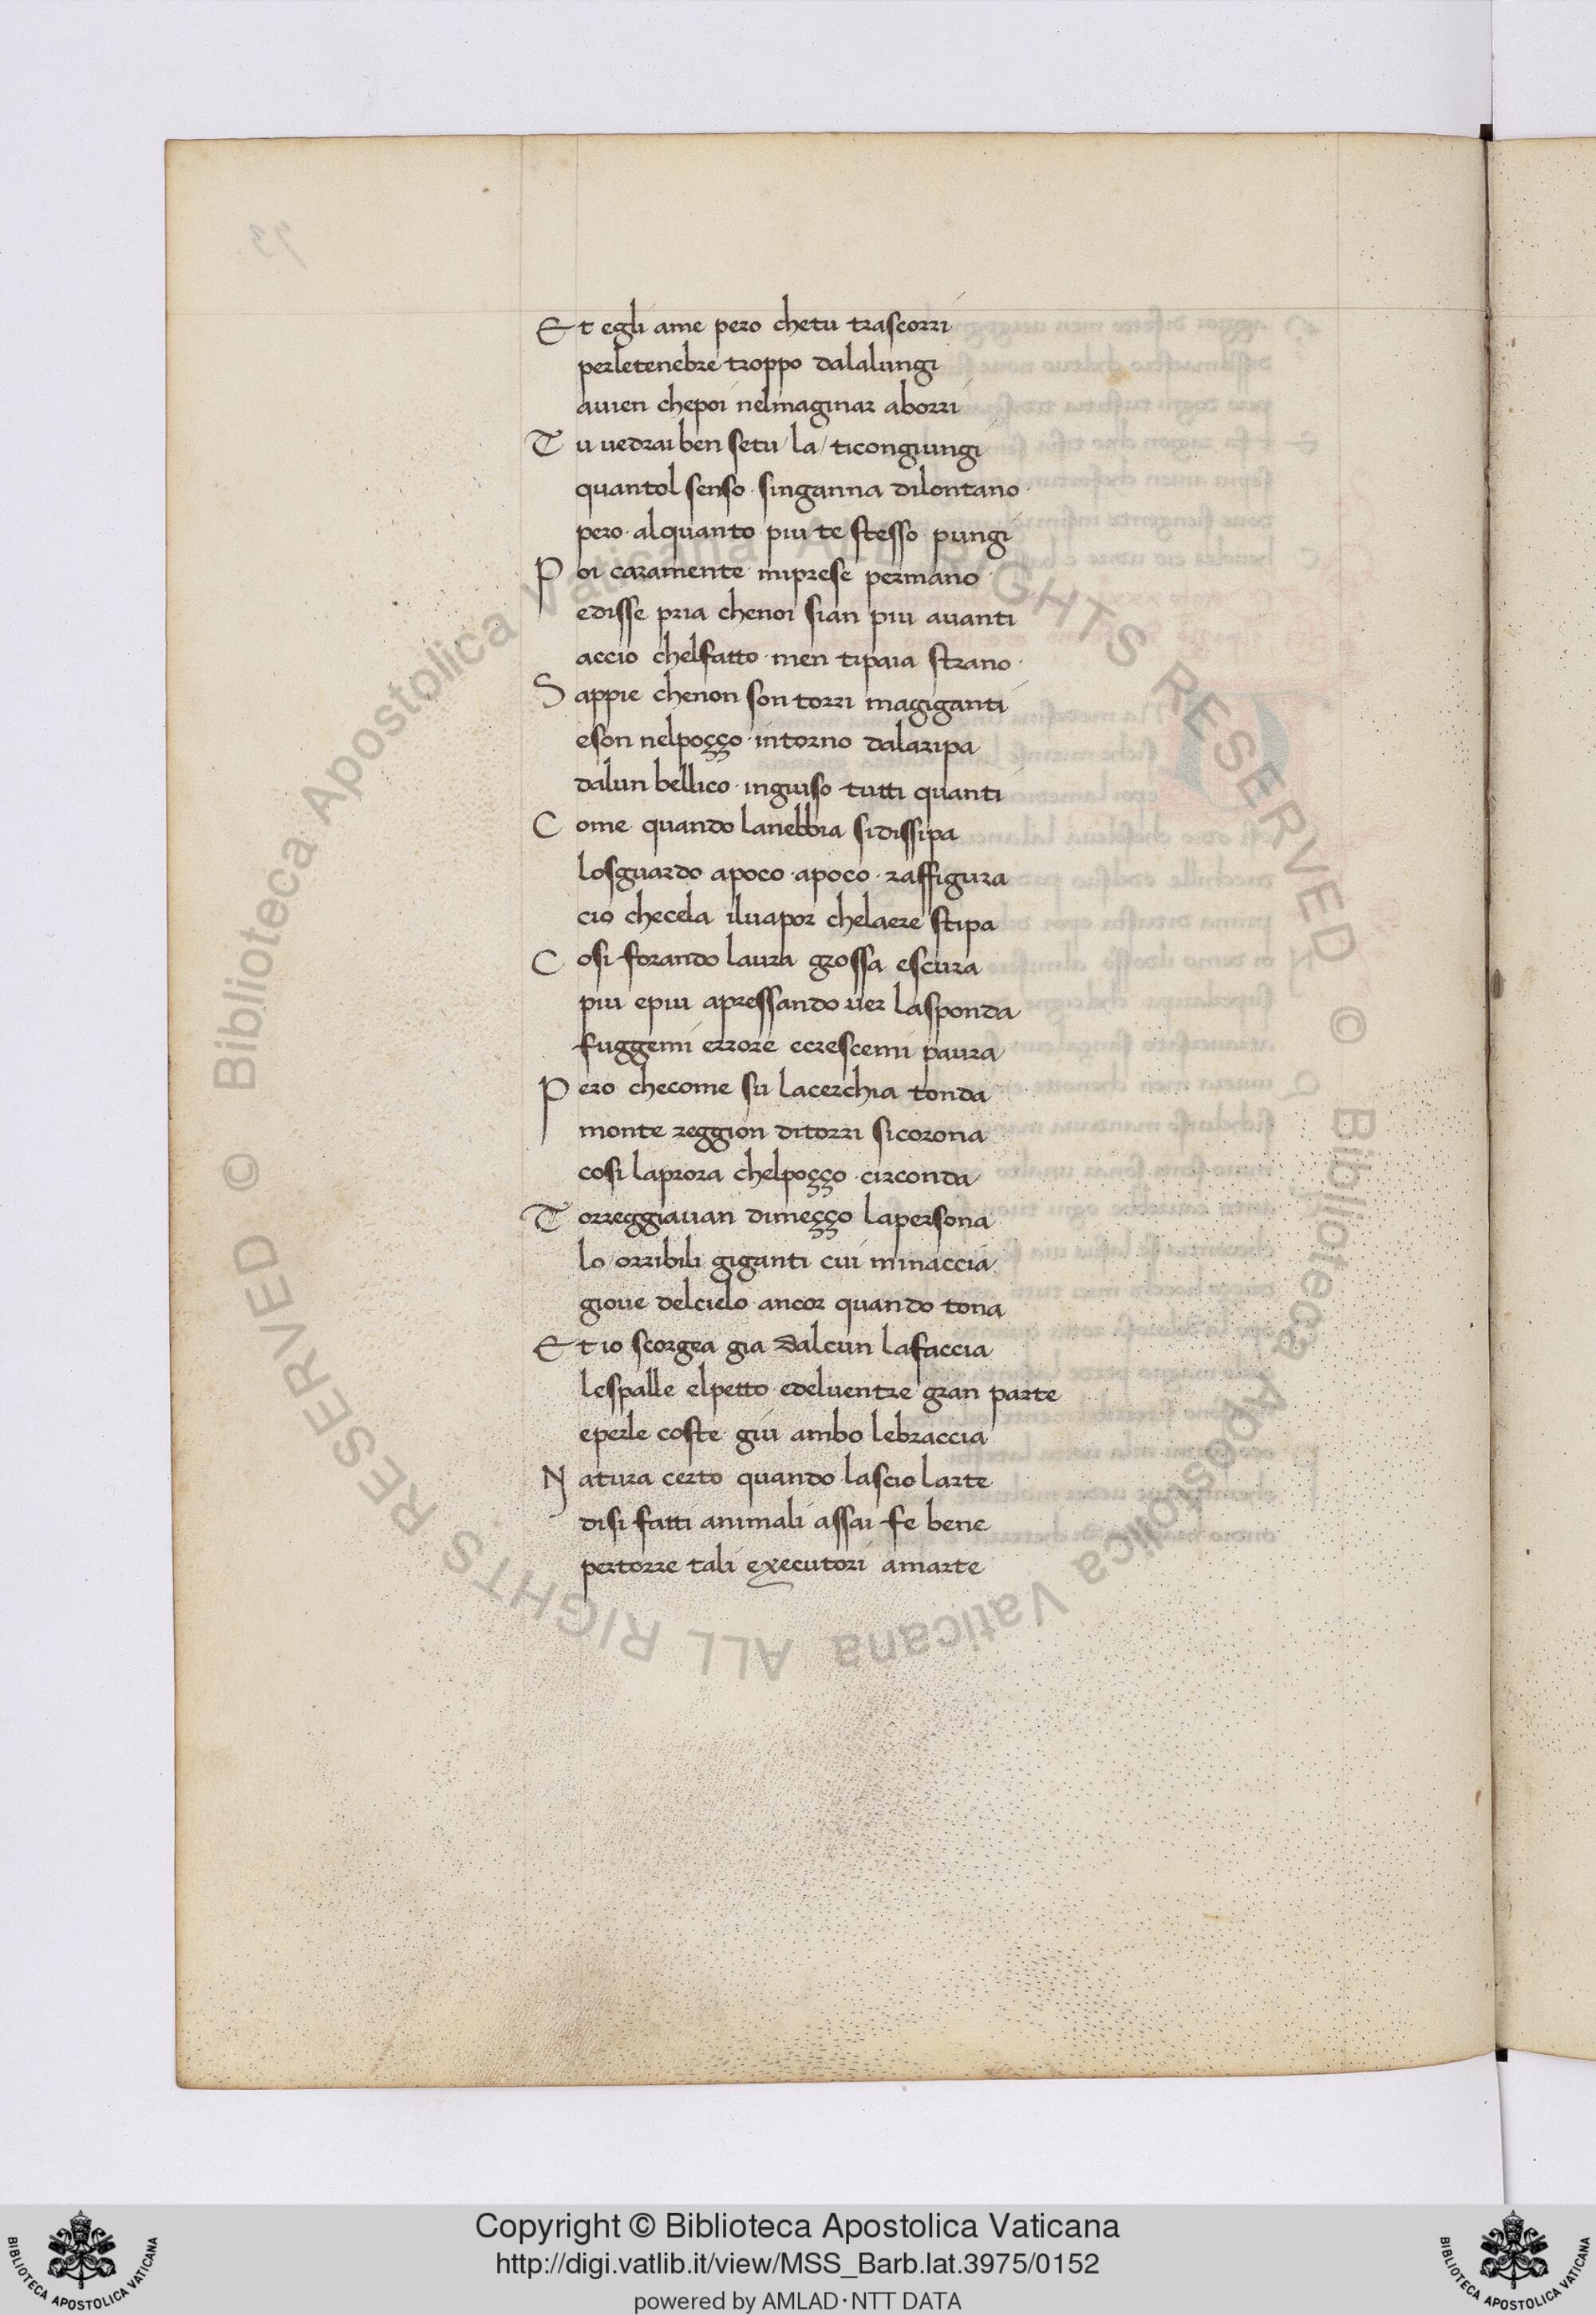 Et egli ame pero chetu trascorri
perletenebre troppo dalalungi
auien chepoi nelmaginar aborri
Tu uedrai ben setu / la / ticongiungi
quantol senso · singanna dilontano ·
pero · alquanto piu te stesso pungi
Poi caramente miprese permano
edisse pria chenoi sian piu auanti
accio chelfatto · men tipaia strano ·
Sappie chenon son torri magiganti
eson nelpoççо · intorno dalaripa
dalun bellico · inguiso tutti quanti
Come quando lanebbia sidissipa
losguardo apoco · apoco · raffigura
cio checela iluapor chelaere stipa
Cosi forando laura grossa escura
piu epiu apressando uer lasponda
fuggemi errore ecrescemi paura
Pero checome su lacerchia tonda
monte reggion ditorri sicorona
cosi laprora chelpoçço · circonda
Torreggiauan dimeçço lapersona
lo orribili giganti cui minaccia
gioue delcielo ancor quando tona
Et io scorgea gia dalcun lafaccia
lespalle elpetto edeluentre gran parte
eperle coste giu ambo lebraccia
Natura certo quando lascio larte
disi fatti animali assai fe bene
pertorre tali executori amarte
© Biblioteca Apostolica Vaticana ALL RIGHTS RESERVED © Biblioteca Apostolica Vaticana ALL RIGHTS RESERVED
Copyright © Biblioteca Apostolica Vaticana
http://digi.vatlib.it/view/MSS_Barb.lat.3975/0152
powered by AMLAD·NTT DATA
BIBLIOTECA APOSTOLICA VATICANA
BIBLIOTECA APOSTOLICA VATICANA